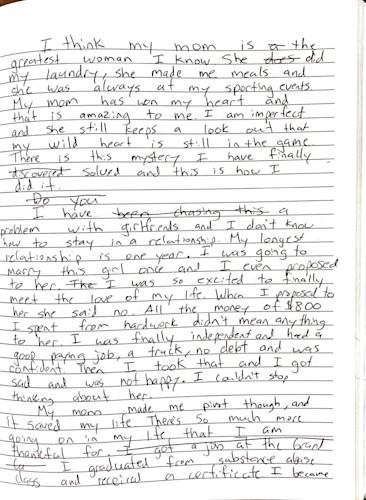 I think my mom is a the
greatest woman I know She does did
my laundry, she made me meals and
she was always at my sporting events.
My mom has won my heart and
that is amazing to me. I am imperfect
and she still keeps a look out that
my wild heart is still in the game.
There is this mystery I have finally
discovered solved and this is how I
did it.
Do you
I have been chasing this a
problem with girlfriends and I don't know
how to stay in a relationship. My longest
relationship is one year. I was going to
marry this girl once and I even proposed
to her. The I was so excited to finally
meet the love of my life. When I proposed to
her she said no. All the money of $800
I spent from hardwork didn't mean anything
to her. I was finally independent and had a
good paying job, a truck, no debt and was
confident. Then I took that and I got
sad and was not happy. I couldn't stop
thinking about her.
My mom made me pivot though, and
It saved my life There's so much more
going on in my life that I am
thankful for. I got a job at the Grand
to I graduated from substance abuse
class and received a certificate I became